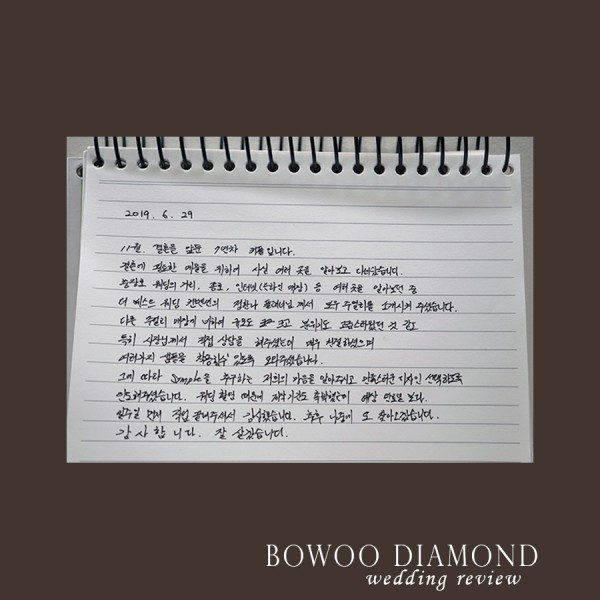 2019. 6. 29
11월. 결혼을 앞둔 7년차 커플입니다.
결혼에 필요한 예물을 위하여 사실 여러 곳을 알아보고 다녀왔습니다.
청담동 웨딩의 거리, 종로, 인터넷(온라인 매장) 등 여러곳을 알아보던 중
더 베스트 웨딩 컨벤션의 플래너님께서 보우 주얼리를 소개시켜 주셨습니다.
다른 주얼리 매장에 비하여 규모도 크고 분위기도 고급스러웠던 것 같고
특히 사장님께서 직접 상담을 해주셨는데 매우 친절하셨으며
여러가지 샘플을 착용할수 있도록 도와주셨습니다.
그에 따라 Simple을 추구하는 저희의 마음을 알아주시고 만족스러운 디자인 선택하도록
인도해주셨습니다. 웨딩 촬영 때문에 제작기간도 촉박했는데 예상 만료일 보다.
일주일 먼저 작업 끝내주셔서 감사했습니다. 추후 나중에 또 찾아오겠습니다.
감사합니다. 잘 살겠습니다.
BOWOO DIAMOND
wedding review